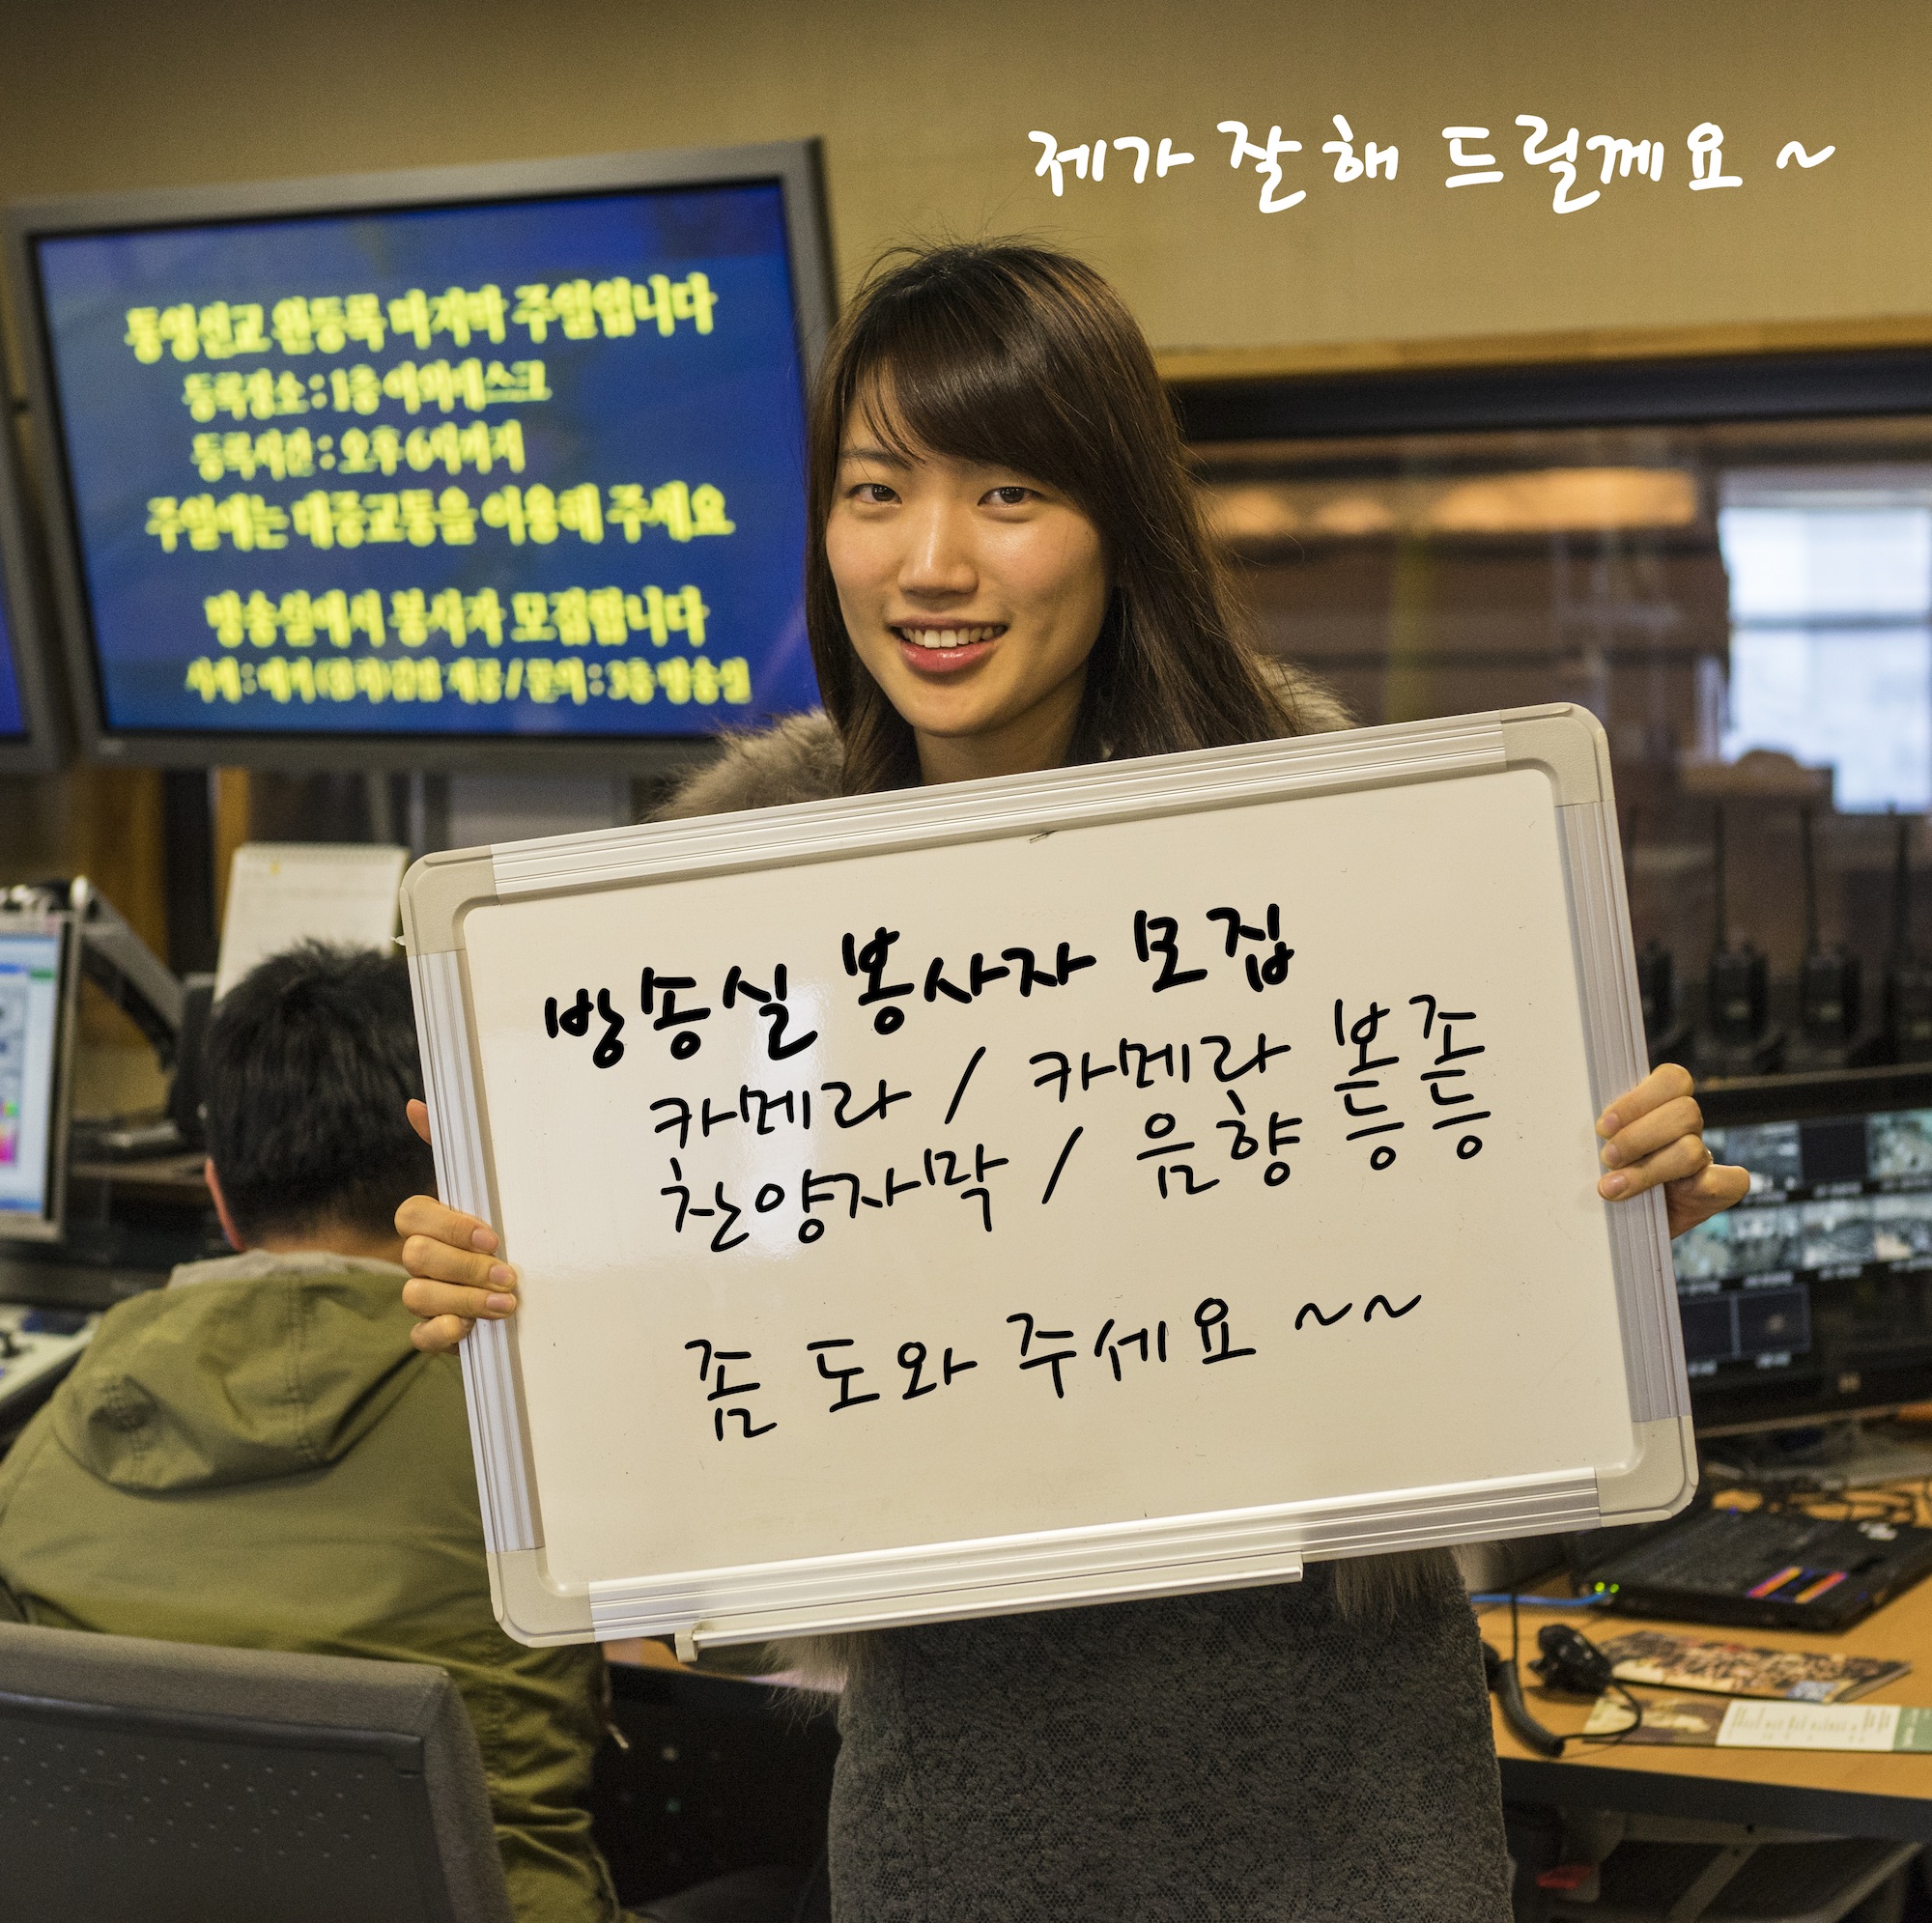 제가 잘해 드릴께요 ~
통영선교 왼등록 마지막 주일입니다
등록장소 : 1층 야외데스크
등록시간 : 오후 6시까지
주일에는 대중교통을 이용해 주세요
방송실에서 봉사자 모집합니다
방송실 봉사자 모집
카메라 / 카메라 보조
찬양자막 / 음향 등등
좀 도와 주세요 ~~